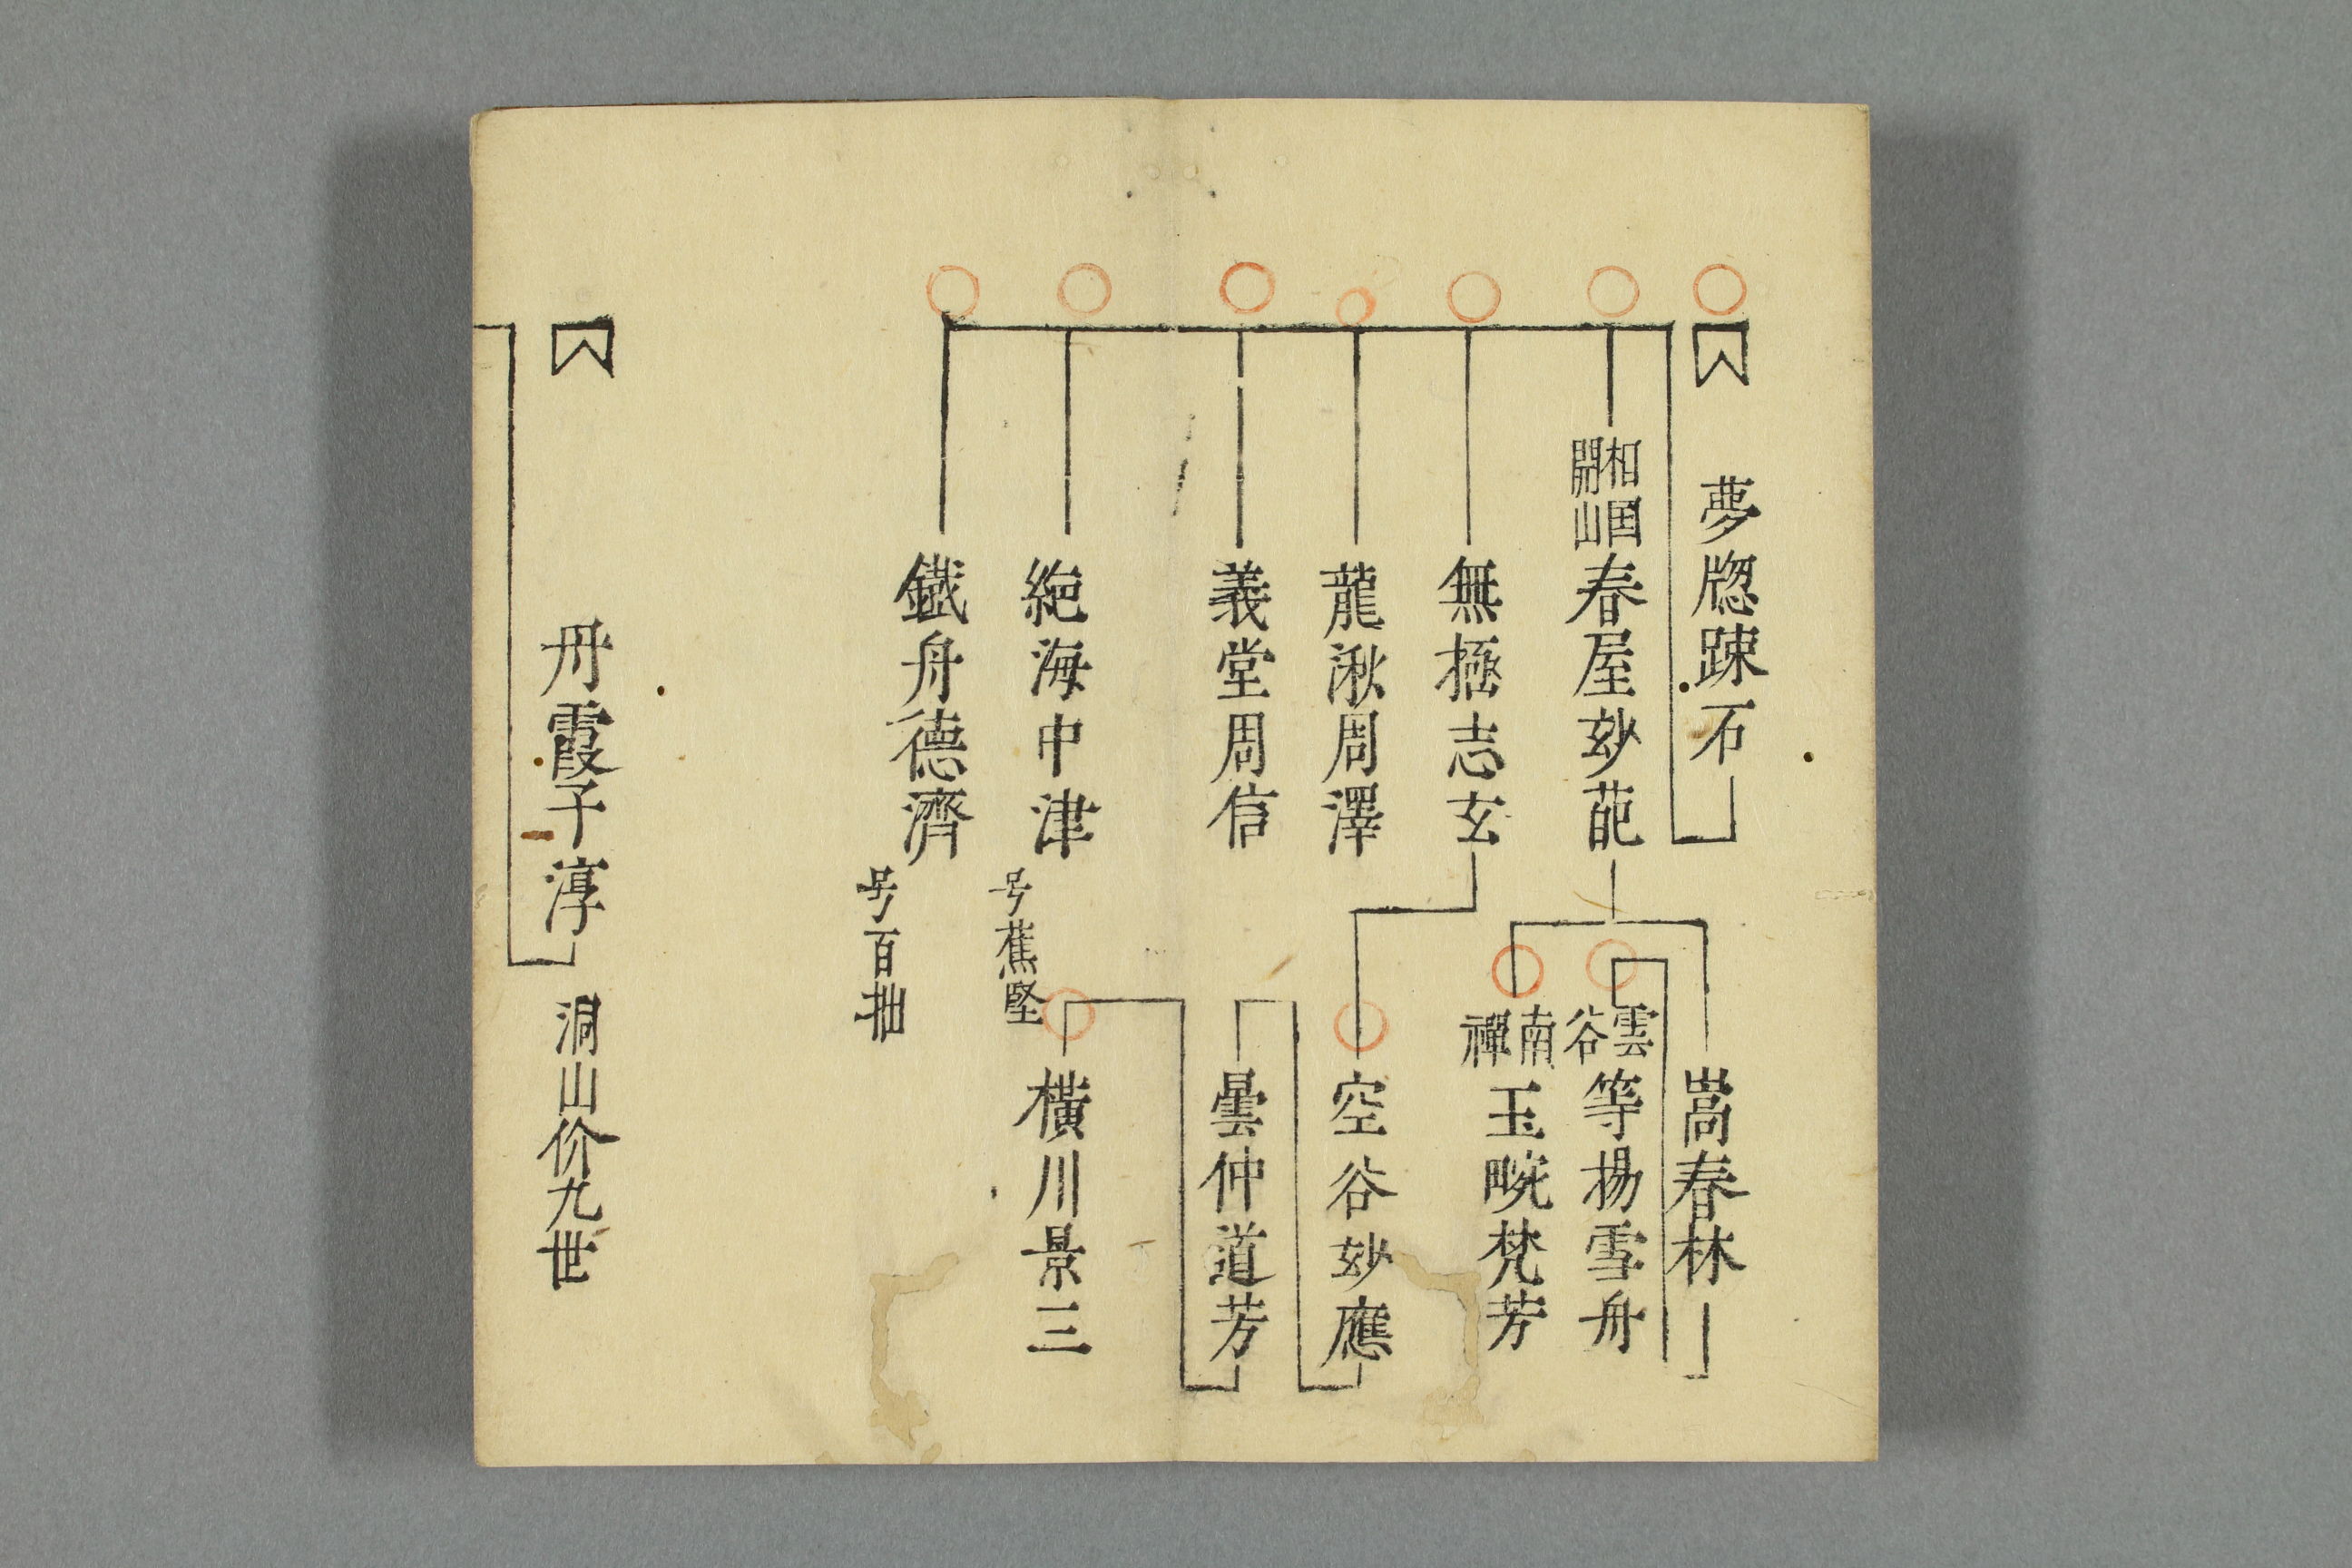 夢牕踈石
相国
開山
春屋玅葩
嵩春林
雲谷
等揚雪舟
南禅
玉畹梵芳
無極志玄
空谷玅應
龍湫周澤
曇仲道芳
義堂周信
橫川景三
絶海中津
号蕉堅
鐵舟德濟
号百拙
丹霞子淳
洞山价九世